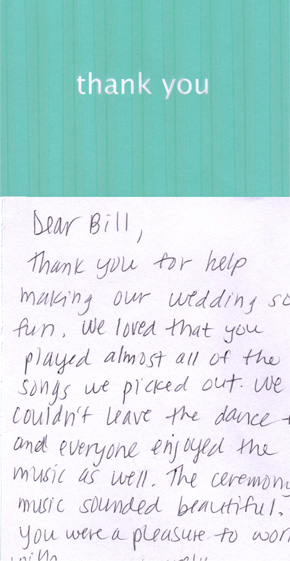 thank you
Dear Bill,
Thank you for help
making our wedding so
fun. We loved that you
played almost all of the
songs we picked out. We
couldn't leave the dance
and everyone enjoyed the
music as well. The ceremony
music sounded beautiful.
You were a pleasure to work
with